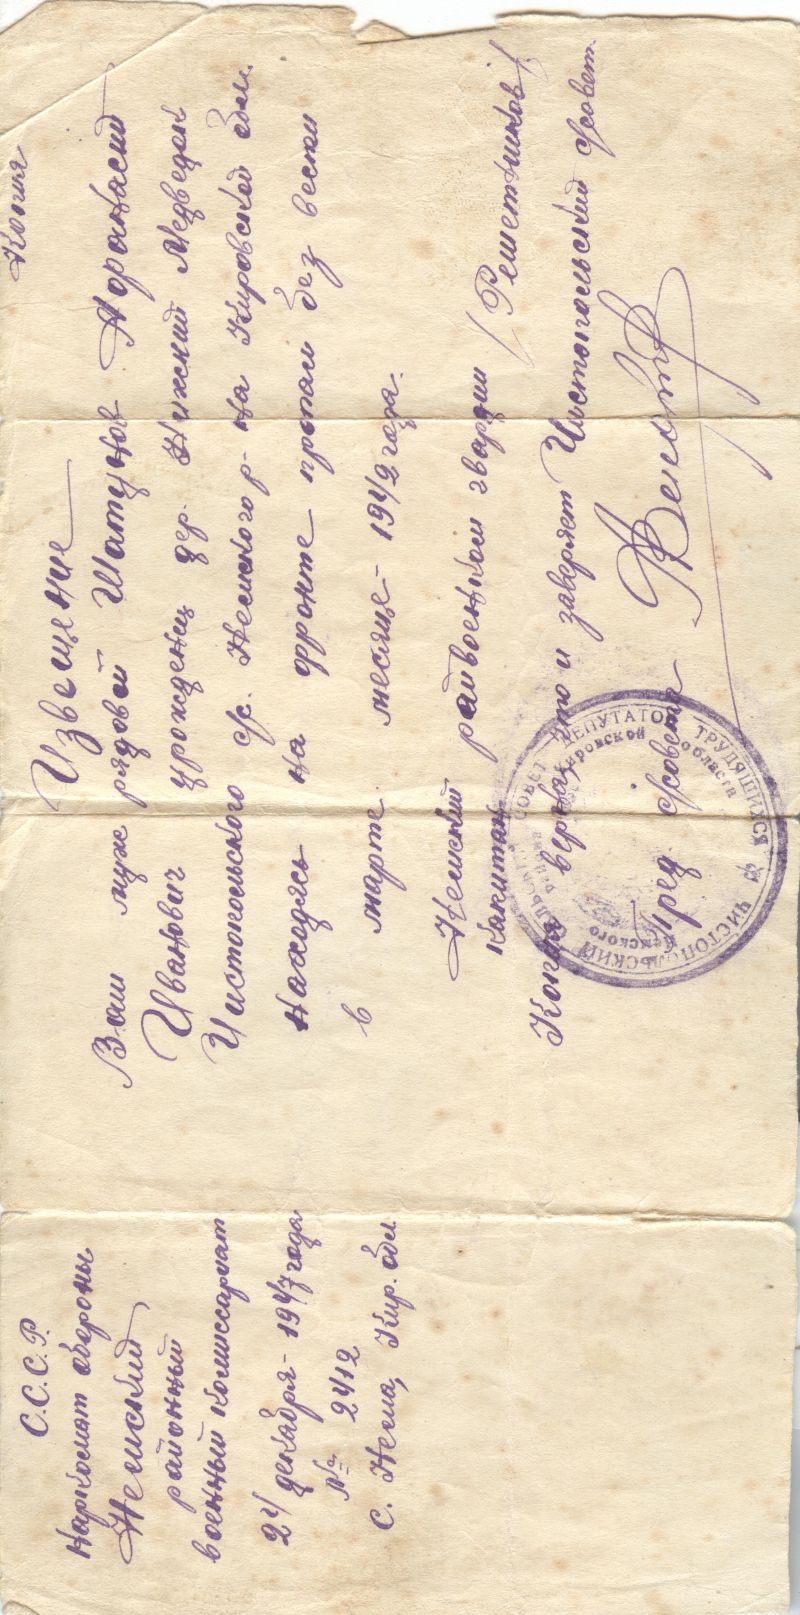 Копия
С.С.С.Р.
Наркомат обороны
Немский
районный
военный комиссариат
24 декабря - 1947 года
№ 2412
с. Нема, Кир. обл.
Извещение
Ваш муж рядовой Шатунов Афонасий
Иванович урожденец дер. Нижний Медведок
Чистопольского с/с. Немского р-на Кировской обл.
находясь на фронте пропал без вести
в марте месяце - 1942 года.
Немский райвоенком гвардии
капитан /Решетников/
Копия верна, что и заверяет Чистопольский с/совет.
Пред. с/совета
ЧИСТОПОЛЬСКИЙ СЕЛЬСКИЙ СОВЕТ ДЕПУТАТОВ ТРУДЯЩИХСЯ
Немского района Кировской области